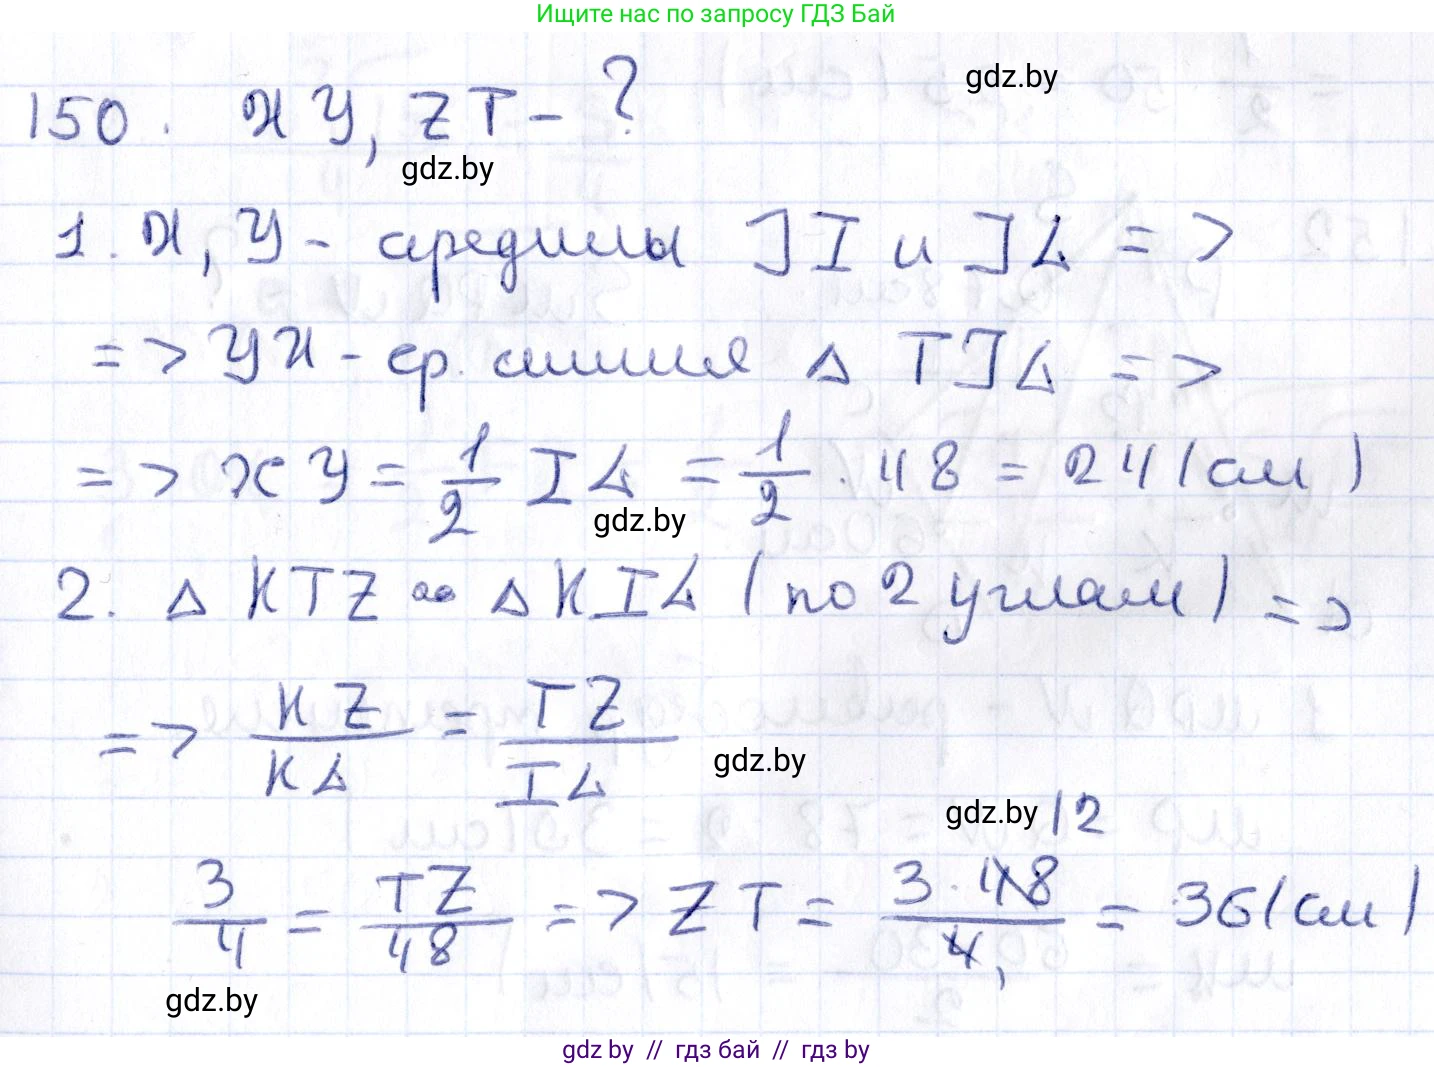 Ищите нас по запросу ГДЗ Бай
gdz.by
150. XY, ZT - ?
gdz.by
1. X, Y - средины JI и JL =>
=> YX - ср. линия Δ TJL =>
=> XY = 1/2 IL = 1/2 · 48 = 24 (см)
gdz.by
2. Δ KTZ ∞ Δ KIL (по 2 углам) =>
=> KZ/KL = TZ/IL
gdz.by
gdz.by 12
3/4 = TZ/48 => ZT = 3·48/4 = 36 (см)
gdz.by
gdz by // гдз бай // гдз by